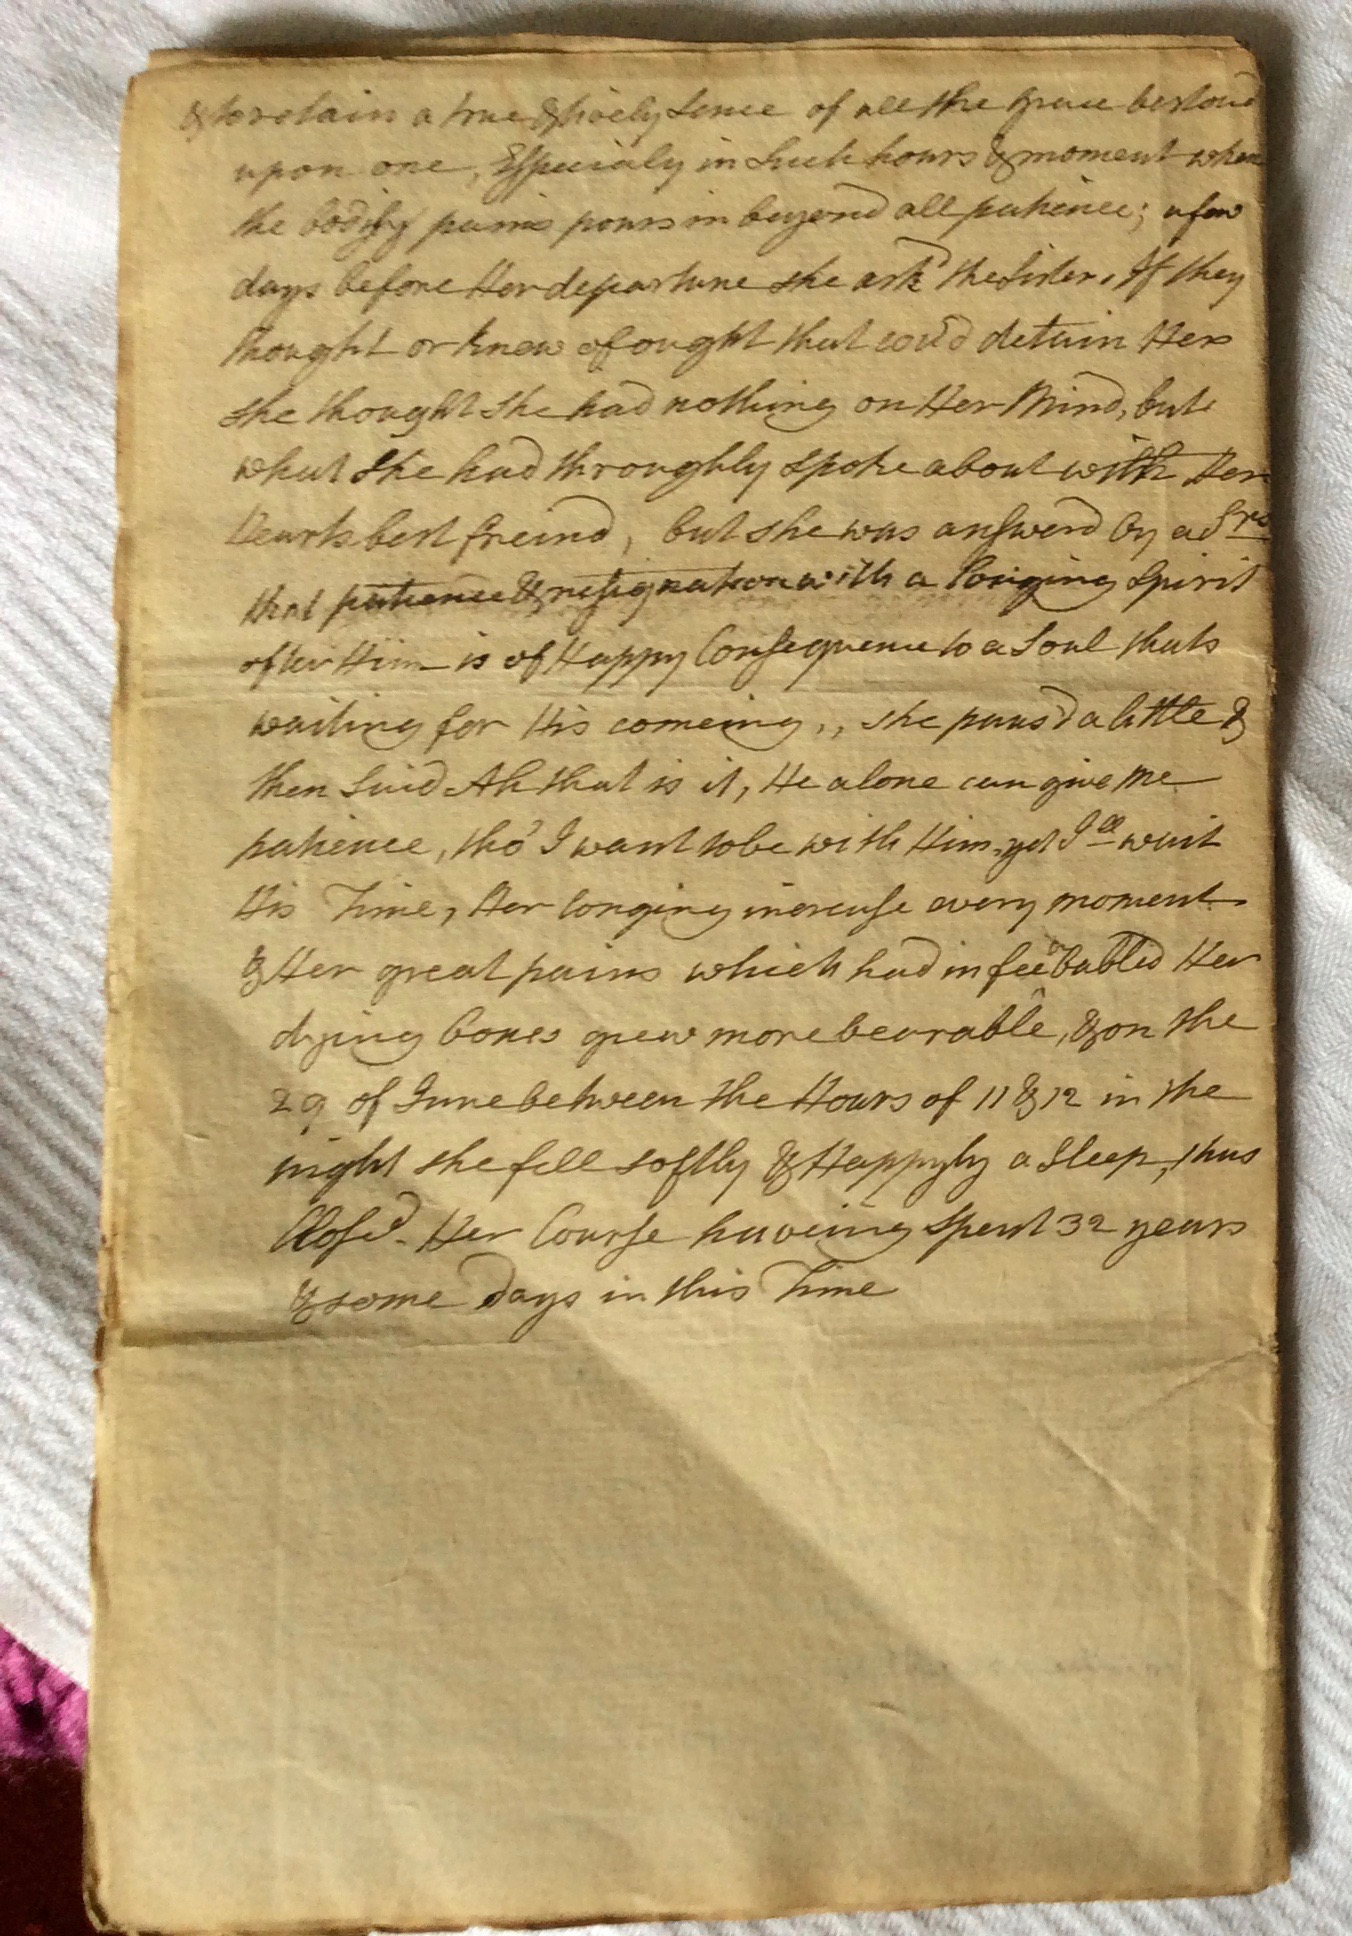 & to retain a true & lively Sence of all the grace bestow'd
upon one, Esspecialy in Such hours & moment when
the bodily pains pours in beyond all patience; a few
days before Her departure she ask'd the Sister, If they
thought or knew of ought that cou'd detain Her
she thought she had nothing on Her Mind, but
what She had throughly spoke about with Her
Hearts best freind, but she was answerd by a Sr
that patience & resignation with a longing Spirit
after Him is of Happy Consequence to a Soul thats
waiting for His comeing,, she paus'd a little &
then Said Ah that is it, He alone can give Me
patience, tho' I want to be with Him, yet I'll wait
His Time, Her longing increase every moment
& Her great pains which had infeebabled Her
dying bones grew more bearable, & on the
29 of June between the Hours of 11 & 12 in the
night she fell softly & Happyly a Sleep, thus
Closed Her Course haveing spent 32 years
& some Days in this Time